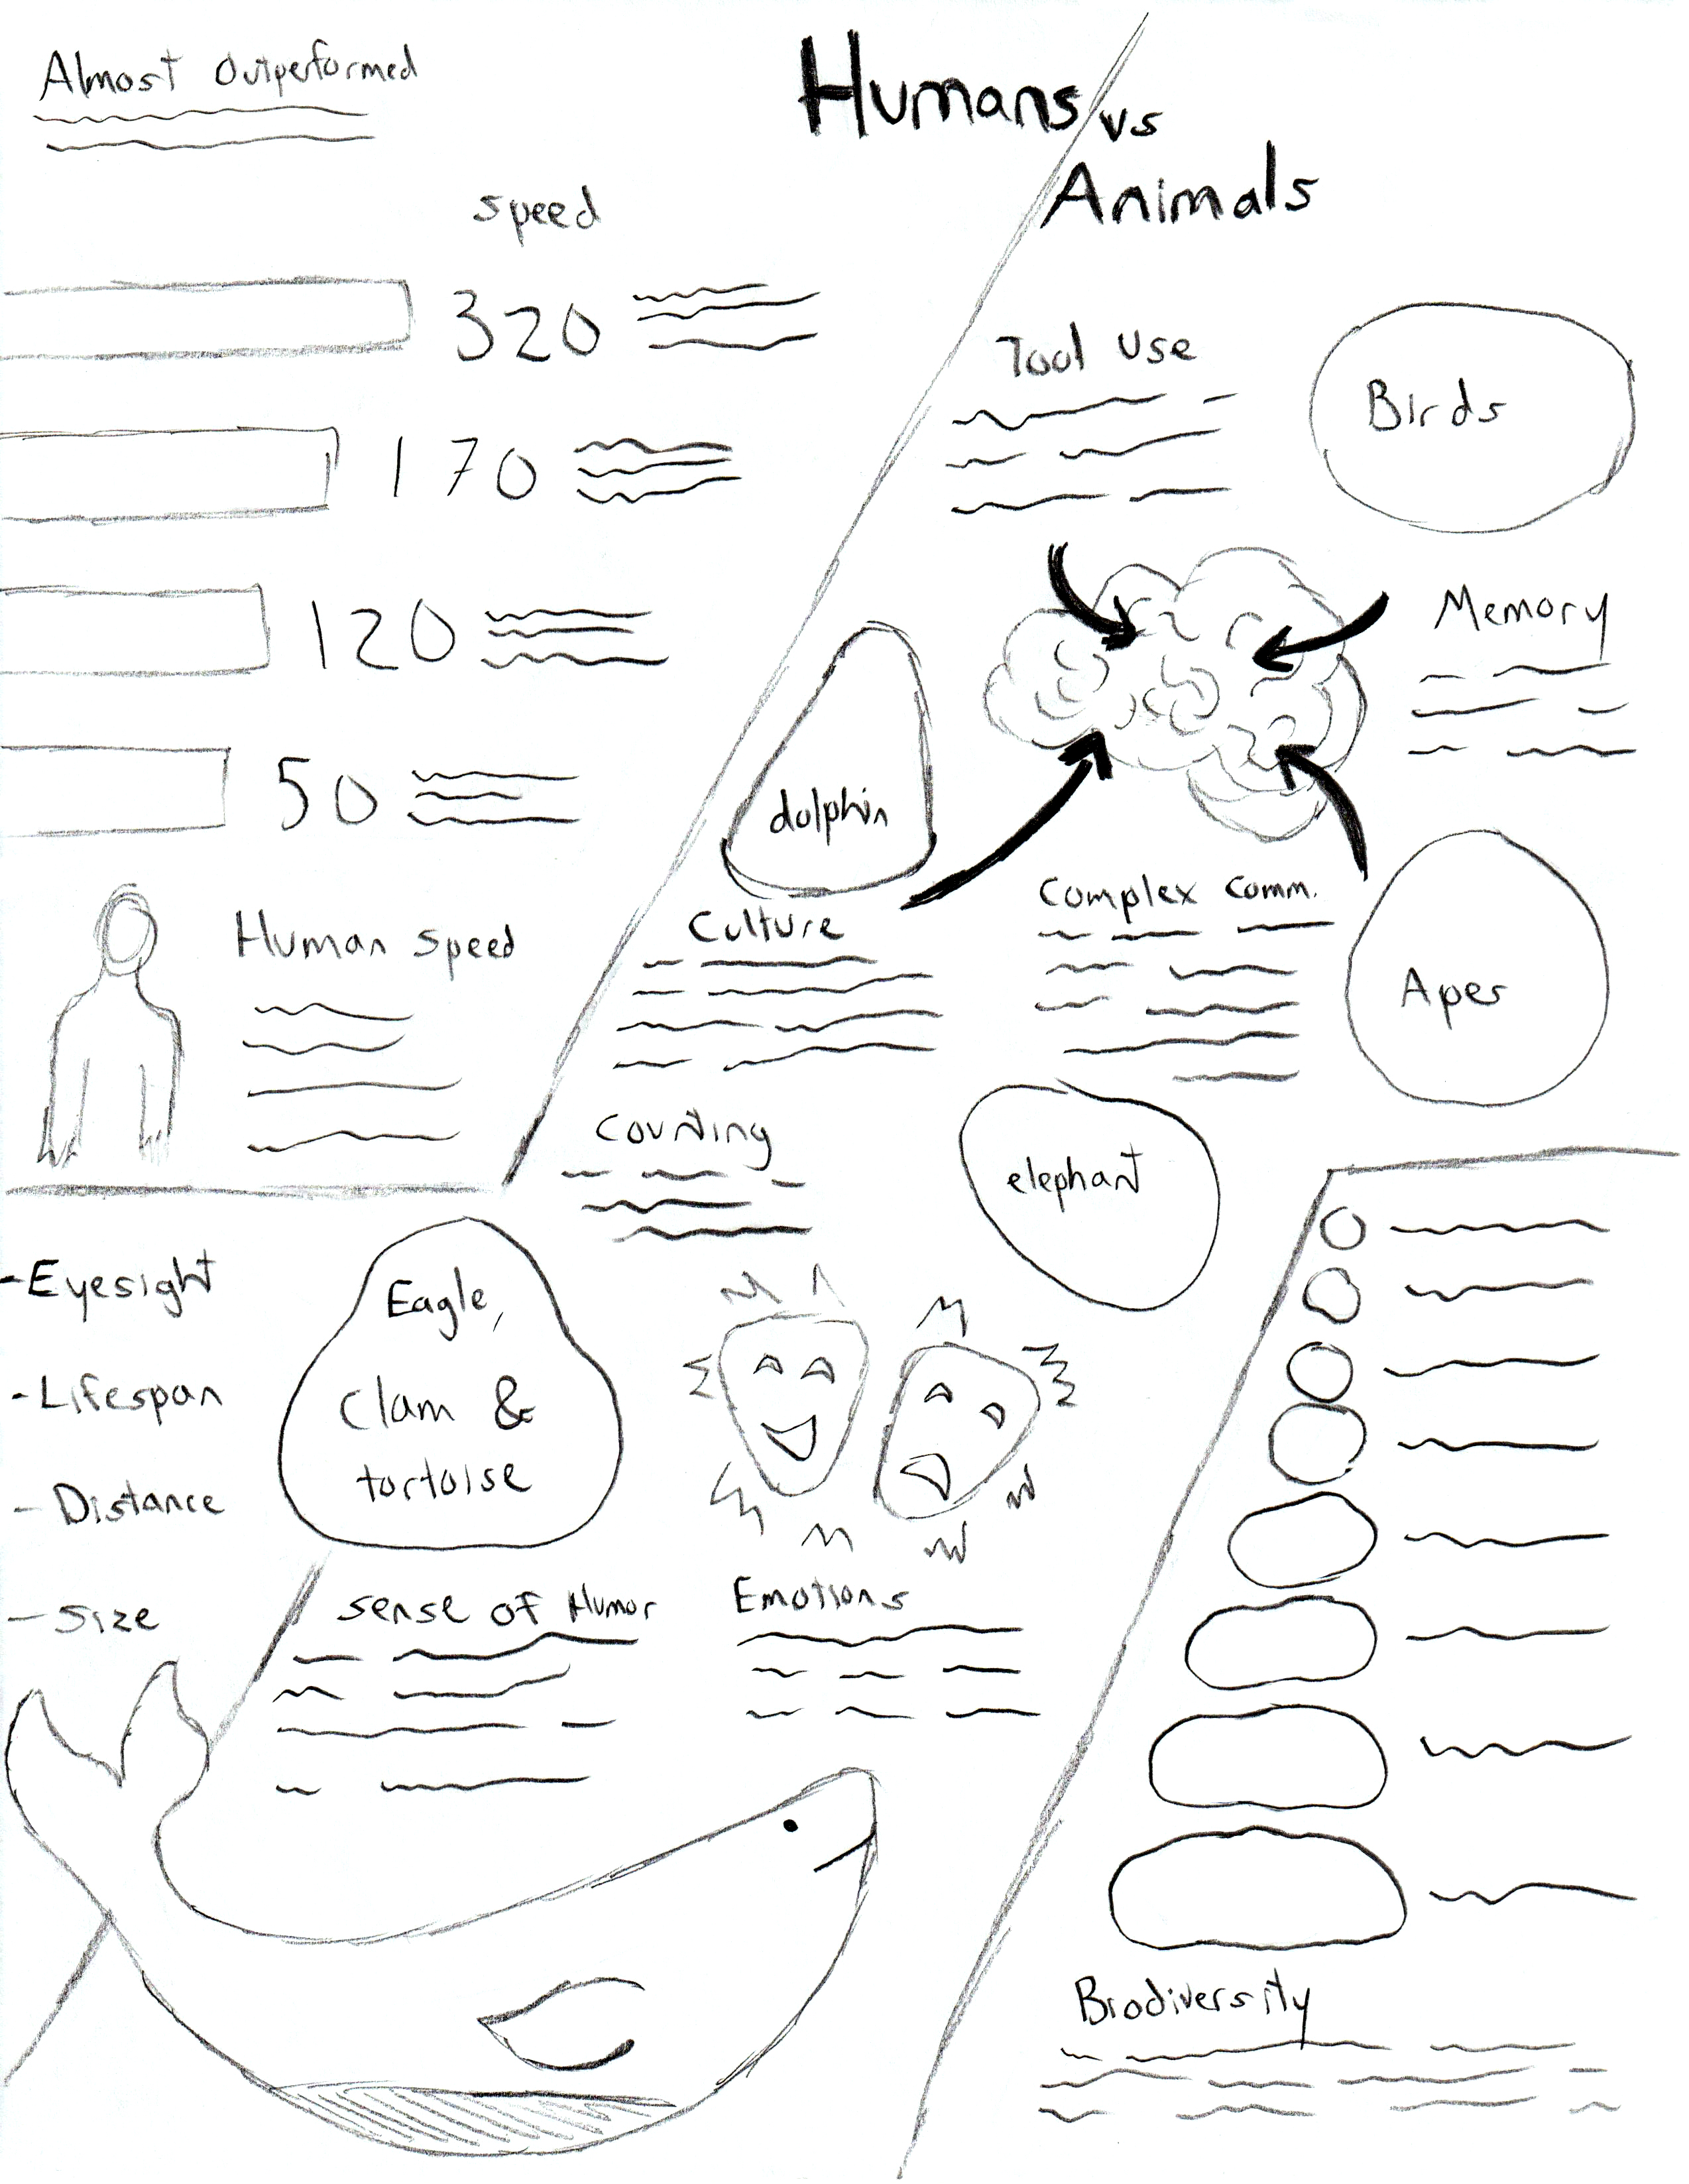 Almost Outperformed
Humans vs
Animals
speed
320
170
120
50
Human speed
Tool use
Birds
Memory
dolphin
Culture
Complex comm.
Apes
counting
elephant
-Eyesight
-Lifespan
-Distance
-Size
Eagle,
Clam &
tortoise
sense of Humor
Emotions
Biodiversity